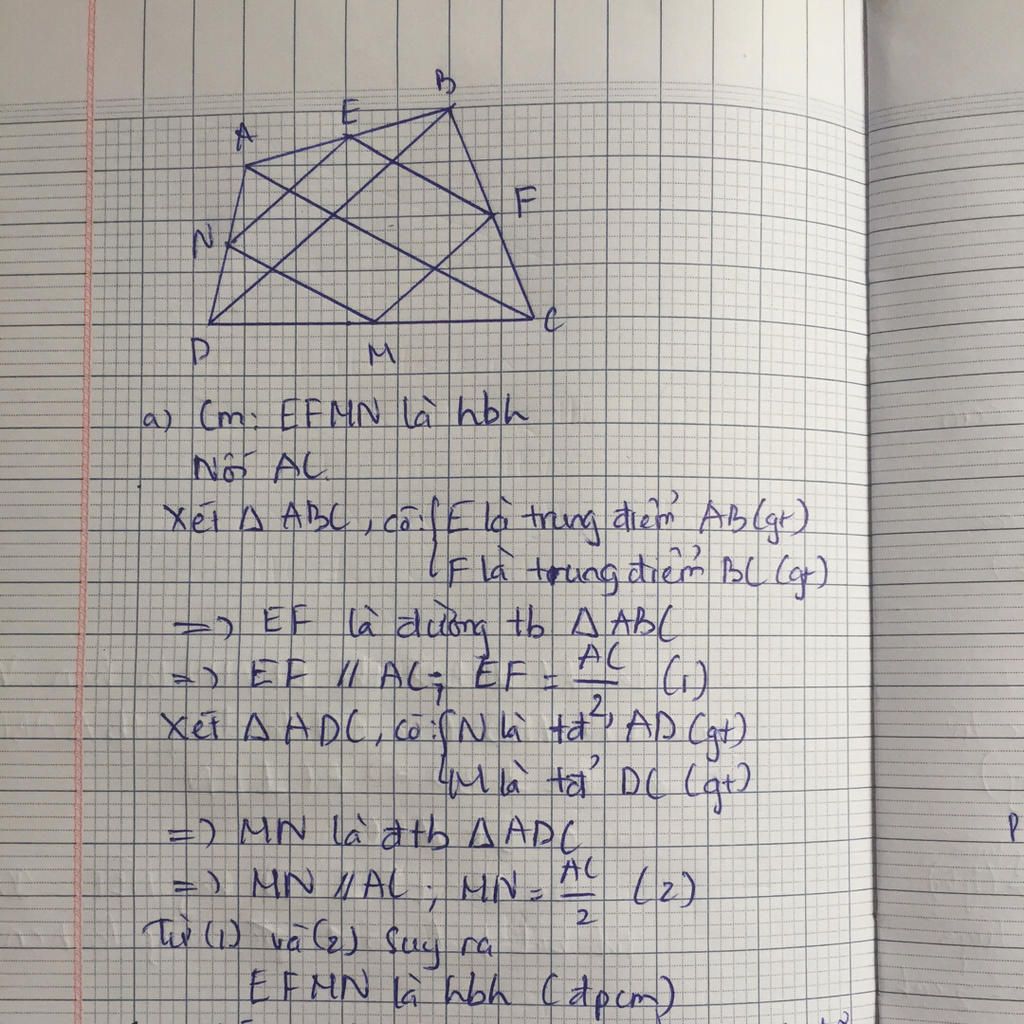 B
E
A
F
N
C
D M
a) Cm: EFMN là hbh
Nối AC.
Xét Δ ABC, có: { E là trung điểm AB (gt)
F là trung điểm BC (gt)
=> EF là đường tb Δ ABC
=> EF // AC; EF = AC/2 (1)
Xét Δ ADC, có: { N là tđ' AD (gt)
M là tđ' DC (gt)
=> MN là đtb Δ ADC
=> MN // AC ; MN = AC/2 (2)
Từ (1) và (2) suy ra
EFMN là hbh (đpcm)
P